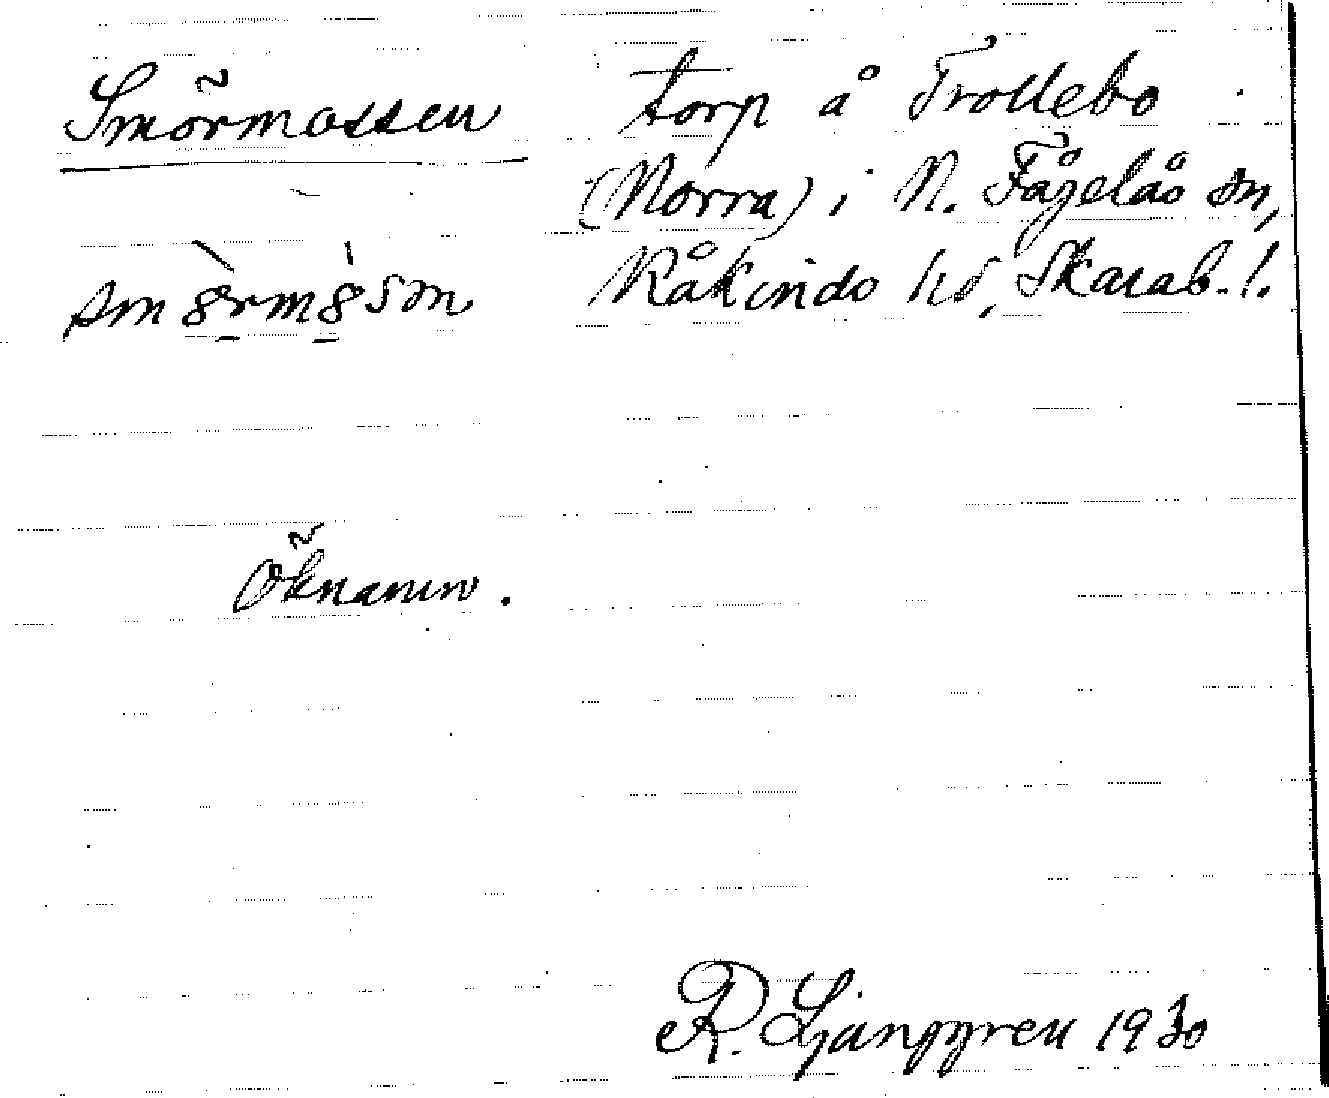 Smörmossen
torp å Trollebo
(Norra) i N. Fågelås sn,
Kåkinds hd, Skarab. l.
Öknamn.
R. Ljunggren 1930